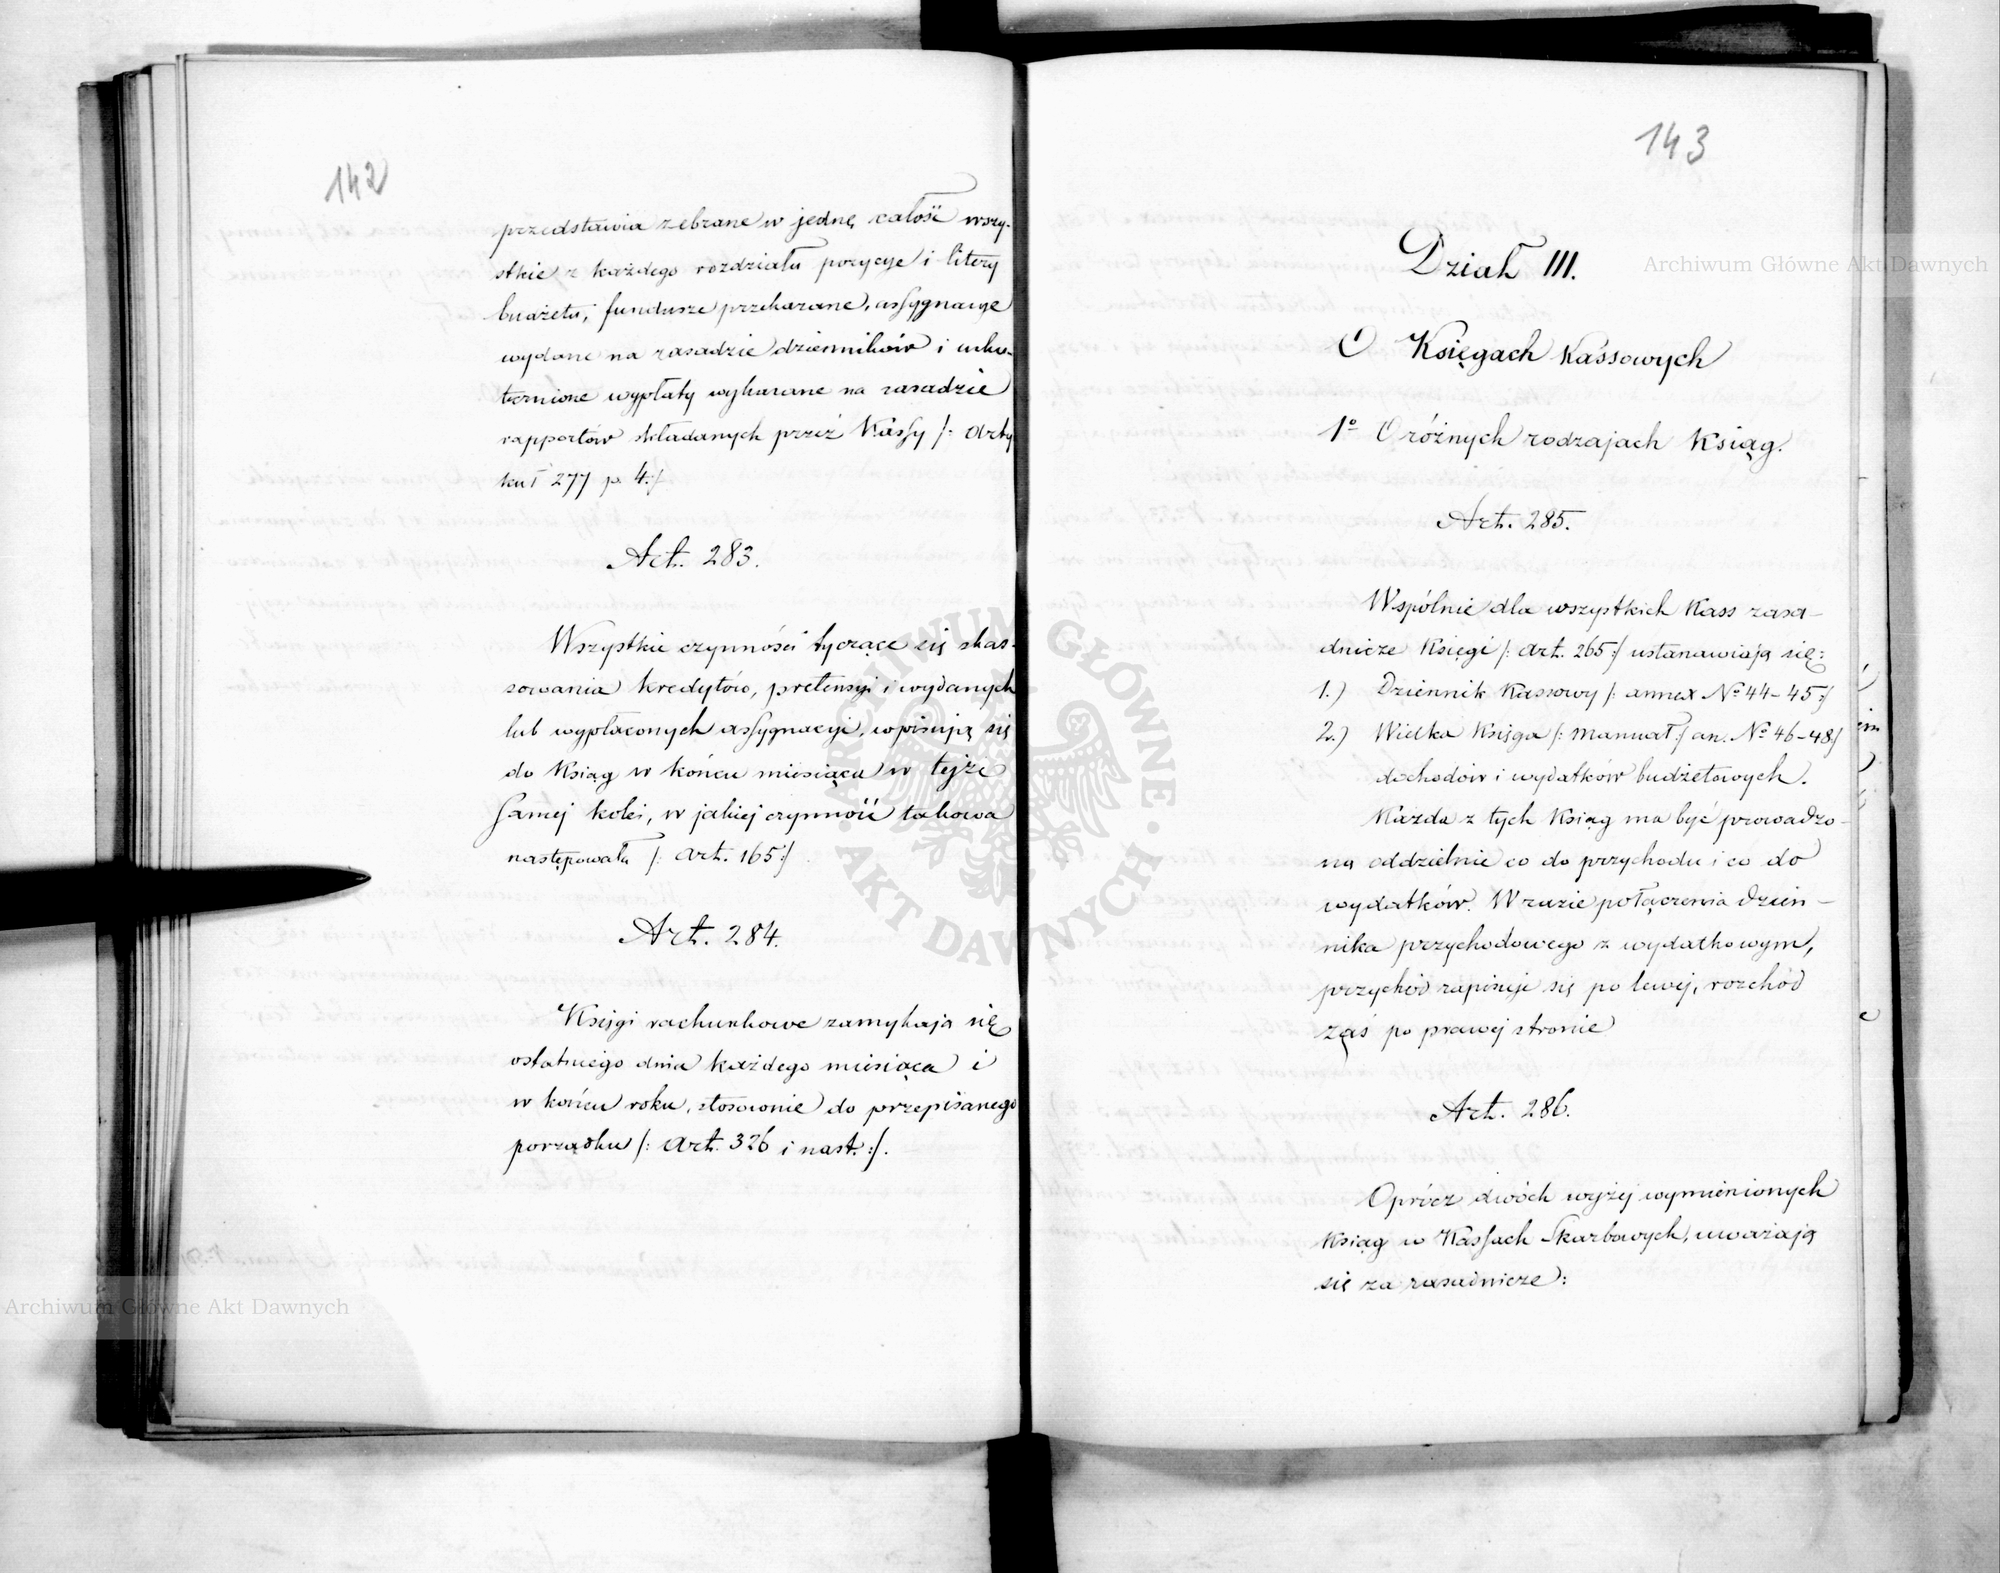 142
przedstawia zebrane w jednę całość wszy-
stkie z każdego rozdziału pozycye i litery
budżetu, fundusze przekazane, assygnacye
wydane na zasadzie dzienników i usku-
tecznione wypłaty wykazane na zasadzie
rapportów składanych przez Kassy /: Arty
kuł 277 p. 4:/
Art. 283.
Wszystkie czynności tyczące się skas-
sowania kredytów, pretensyi i wydanych
lub wypłaconych assygnacyi, wpisują się
do Ksiąg w końcu miesiąca w tejże
samej kolei, w jakiej czynność takowa
następowała /: Art. 165:/
Art. 284.
Księgi rachunkowe zamykają się
ostatniego dnia każdego miesiąca i
w końcu roku, stosownie do przepisanego
porządku /: Art. 326 i nast.:/.
143
Dział III.
O Księgach Kassowych
1º O różnych rodzajach Ksiąg.
Art. 285.
Wspólnie dla wszystkich Kass zasa-
dnicze Księgi /: Art. 265:/ ustanawiają się:
1.) Dziennik Kassowy /: annex Nº 44-45:/
2.) Wielka Księga /: Manuał:/ an. Nº 46-48:/
dochodów i wydatków budżetowych.
Każda z tych Ksiąg ma być prowadzo-
ną oddzielnie co do przychodu i co do
wydatków. W razie połączenia dzien-
nika przychodowego z wydatkowym,
przychód zapisuje się po lewej, rozchód
zaś po prawej stronie
Art. 286.
Oprócz dwóch wyżej wymienionych
Ksiąg w Kassach Skarbowych, uważają
się za zasadnicze:
Archiwum Główne Akt Dawnych
Archiwum Główne Akt Dawnych
ARCHIWUM GŁÓWNE · AKT DAWNYCH ·